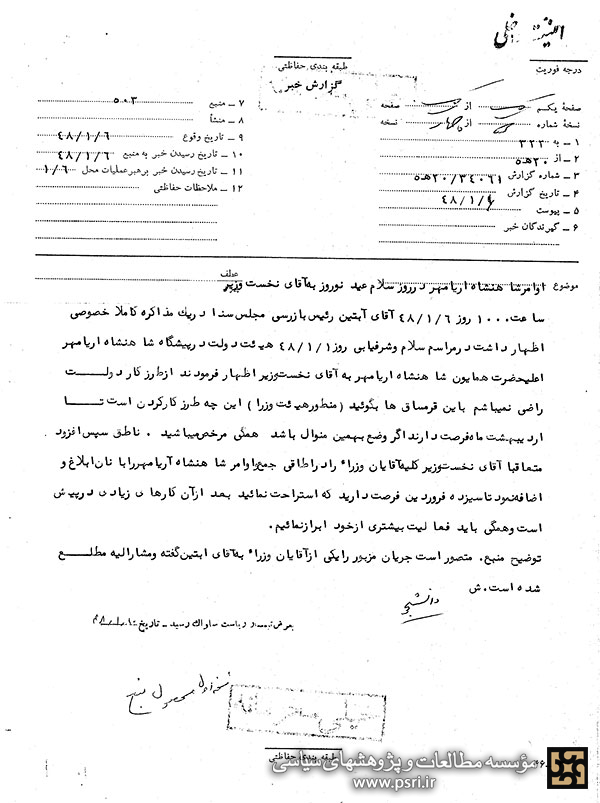 درجه فوریت
طبقه بندی حفاظتی
گزارش خبر
صفحهٔ یکم از صفحه
نسخهٔ شماره از چهار نسخه
۱ ـ به ۳۲۲
۲ ـ از ۲۰ه‍۵
۳ ـ شماره گزارش ۲۰/۳۴۰۶۱ه‍۵
۴ ـ تاریخ گزارش ۴۸/۱/۶
۵ ـ پیوست
۶ ـ گیرندگان خبر
۷ ـ منبع ۵۰۳
۸ ـ منشأ
۹ ـ تاریخ وقوع ۴۸/۱/۶
۱۰ ـ تاریخ رسیدن خبر به منبع ۴۸/۱/۶
۱۱ ـ تاریخ رسیدن خبر برهبرعملیات محل ۱/۶
۱۲ ـ ملاحظات حفاظتی
موضوع اوامرشاهنشاه اریامهر درروز سلام عید نوروز به‌آقای نخست وزیر
عطف
ساعت ۱۰۰۰ روز ۴۸/۱/۶ آقای آبتین رئیس بازرسی مجلس سنا دریك مذاکره کاملا خصوصی
اظهار داشت درمراسم سلام وشرفیابی روز ۴۸/۱/۱ هیئت دولت درپیشگاه شاهنشاه اریامهر
اعلیحضرت همایون شاهنشاه اریامهر به آقای نخست‌وزیر اظهار فرمودند ازطرز کار دولت
راضی نمیباشم باین قرمساق ها بگوئید (منظورهیئت وزرا) این چه طرز کارکردن است تا
اردیبهشت ماه فرصت دارند اگر وضع بهمین منوال باشد همگی مرخص میباشید . ناطق سپس افزود
متعاقبا آقای نخست وزیر کلیه آقایان وزراء رادراطاقی جمع واوامر شاهنشاه آریامهررا بانان ابلاغ و
اضافه نمود تاسیزده فروردین فرصت دارید که استراحت نمائید بعد ازآن کارهای زیادی درپیش
است وهمگی باید فعالیت بیشتری ازخود ابرازنمائیم.
توضیح منبع. متصور است جریان مزبور رایکی ازآقایان وزراء به‌آقای ابتین گفته ومشارالیه مطلع
شده است. ش
دانشجو
بعرض تیمسار ریاست ساواك رسید ـ تاریخ
خیلی محرمانه
طبقه بندی حفاظتی
مؤسسه مطالعات و پژوهشهای سیاسی
www.psri.ir